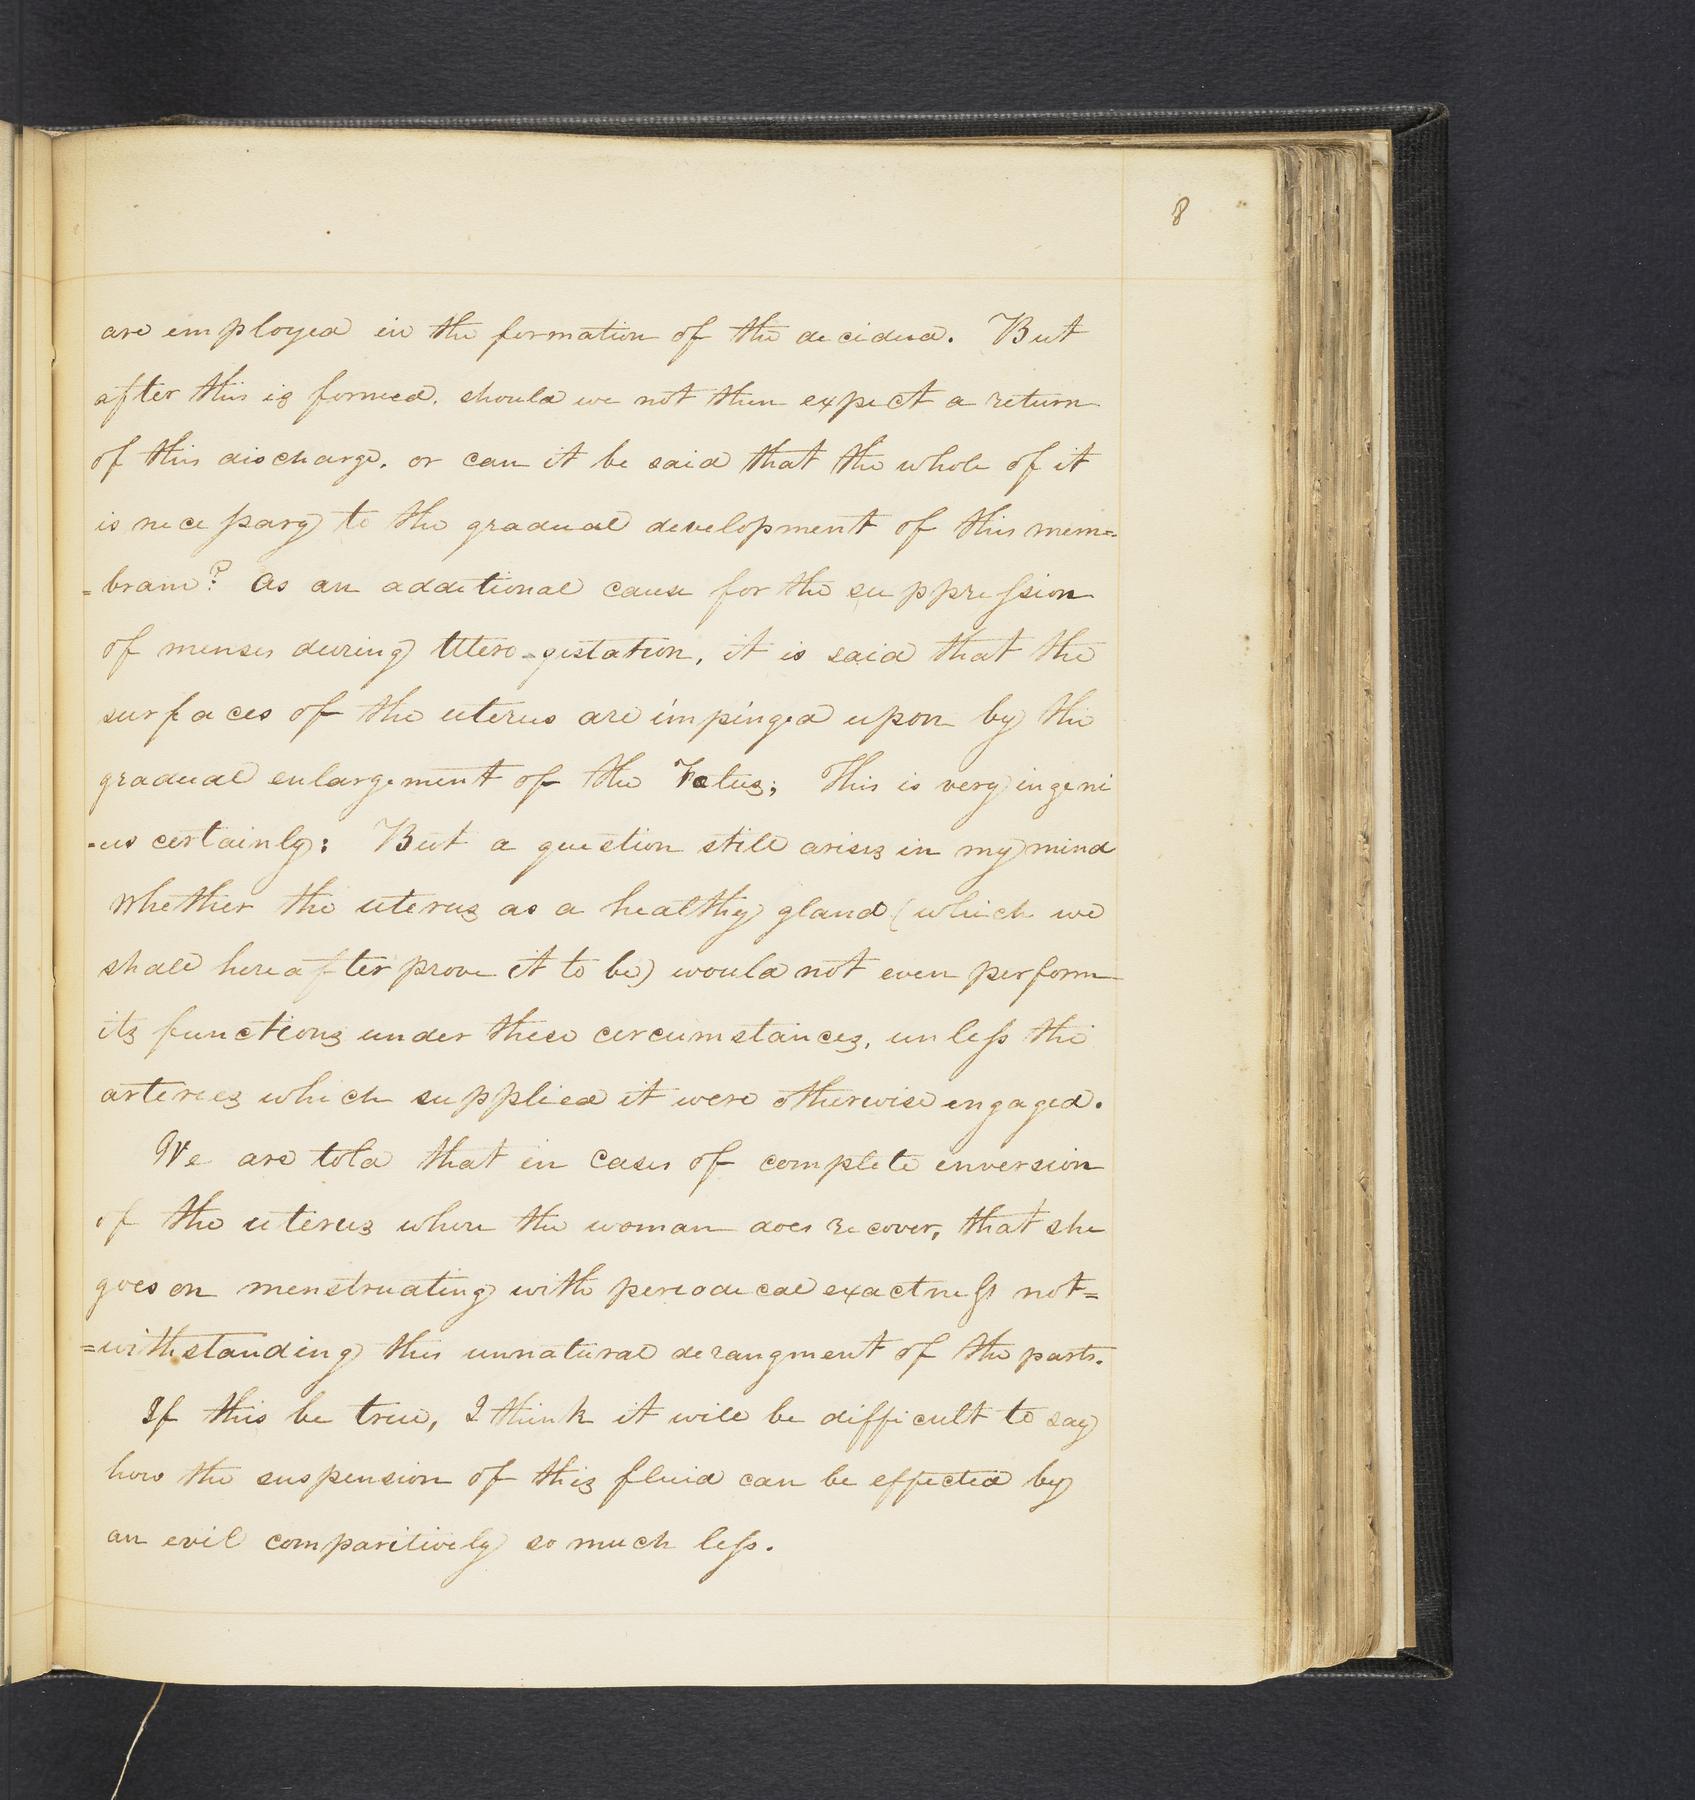 8
are employed in the formation of the decidua. But
after this is formed, should we not then expect a return
of this discharge, or can it be said that the whole of it
is necessary to the gradual development of this mem=
=brane? As an additional cause for the suppression
of menses during Utero-gestation, it is said that the
surfaces of the uterus are impinged upon by the
gradual enlargement of the Fœtus; This is very ingeni
-us certainly: But a question still arises in my mind
Whether the uterus as a healthy gland (which we
shall hereafter prove it to be) would not even perform
its functions under these circumstances, unless the
arteries which supplied it were otherwise engaged.
We are told that in cases of complete inversion
of the uterus where the woman does recover, that she
goes on menstruating with periodical exactness not=
=withstanding this unnatural derangment of the parts.
If this be true, I think it will be difficult to say
how the suspension of this fluid can be effected by
an evil comparitively so much less.